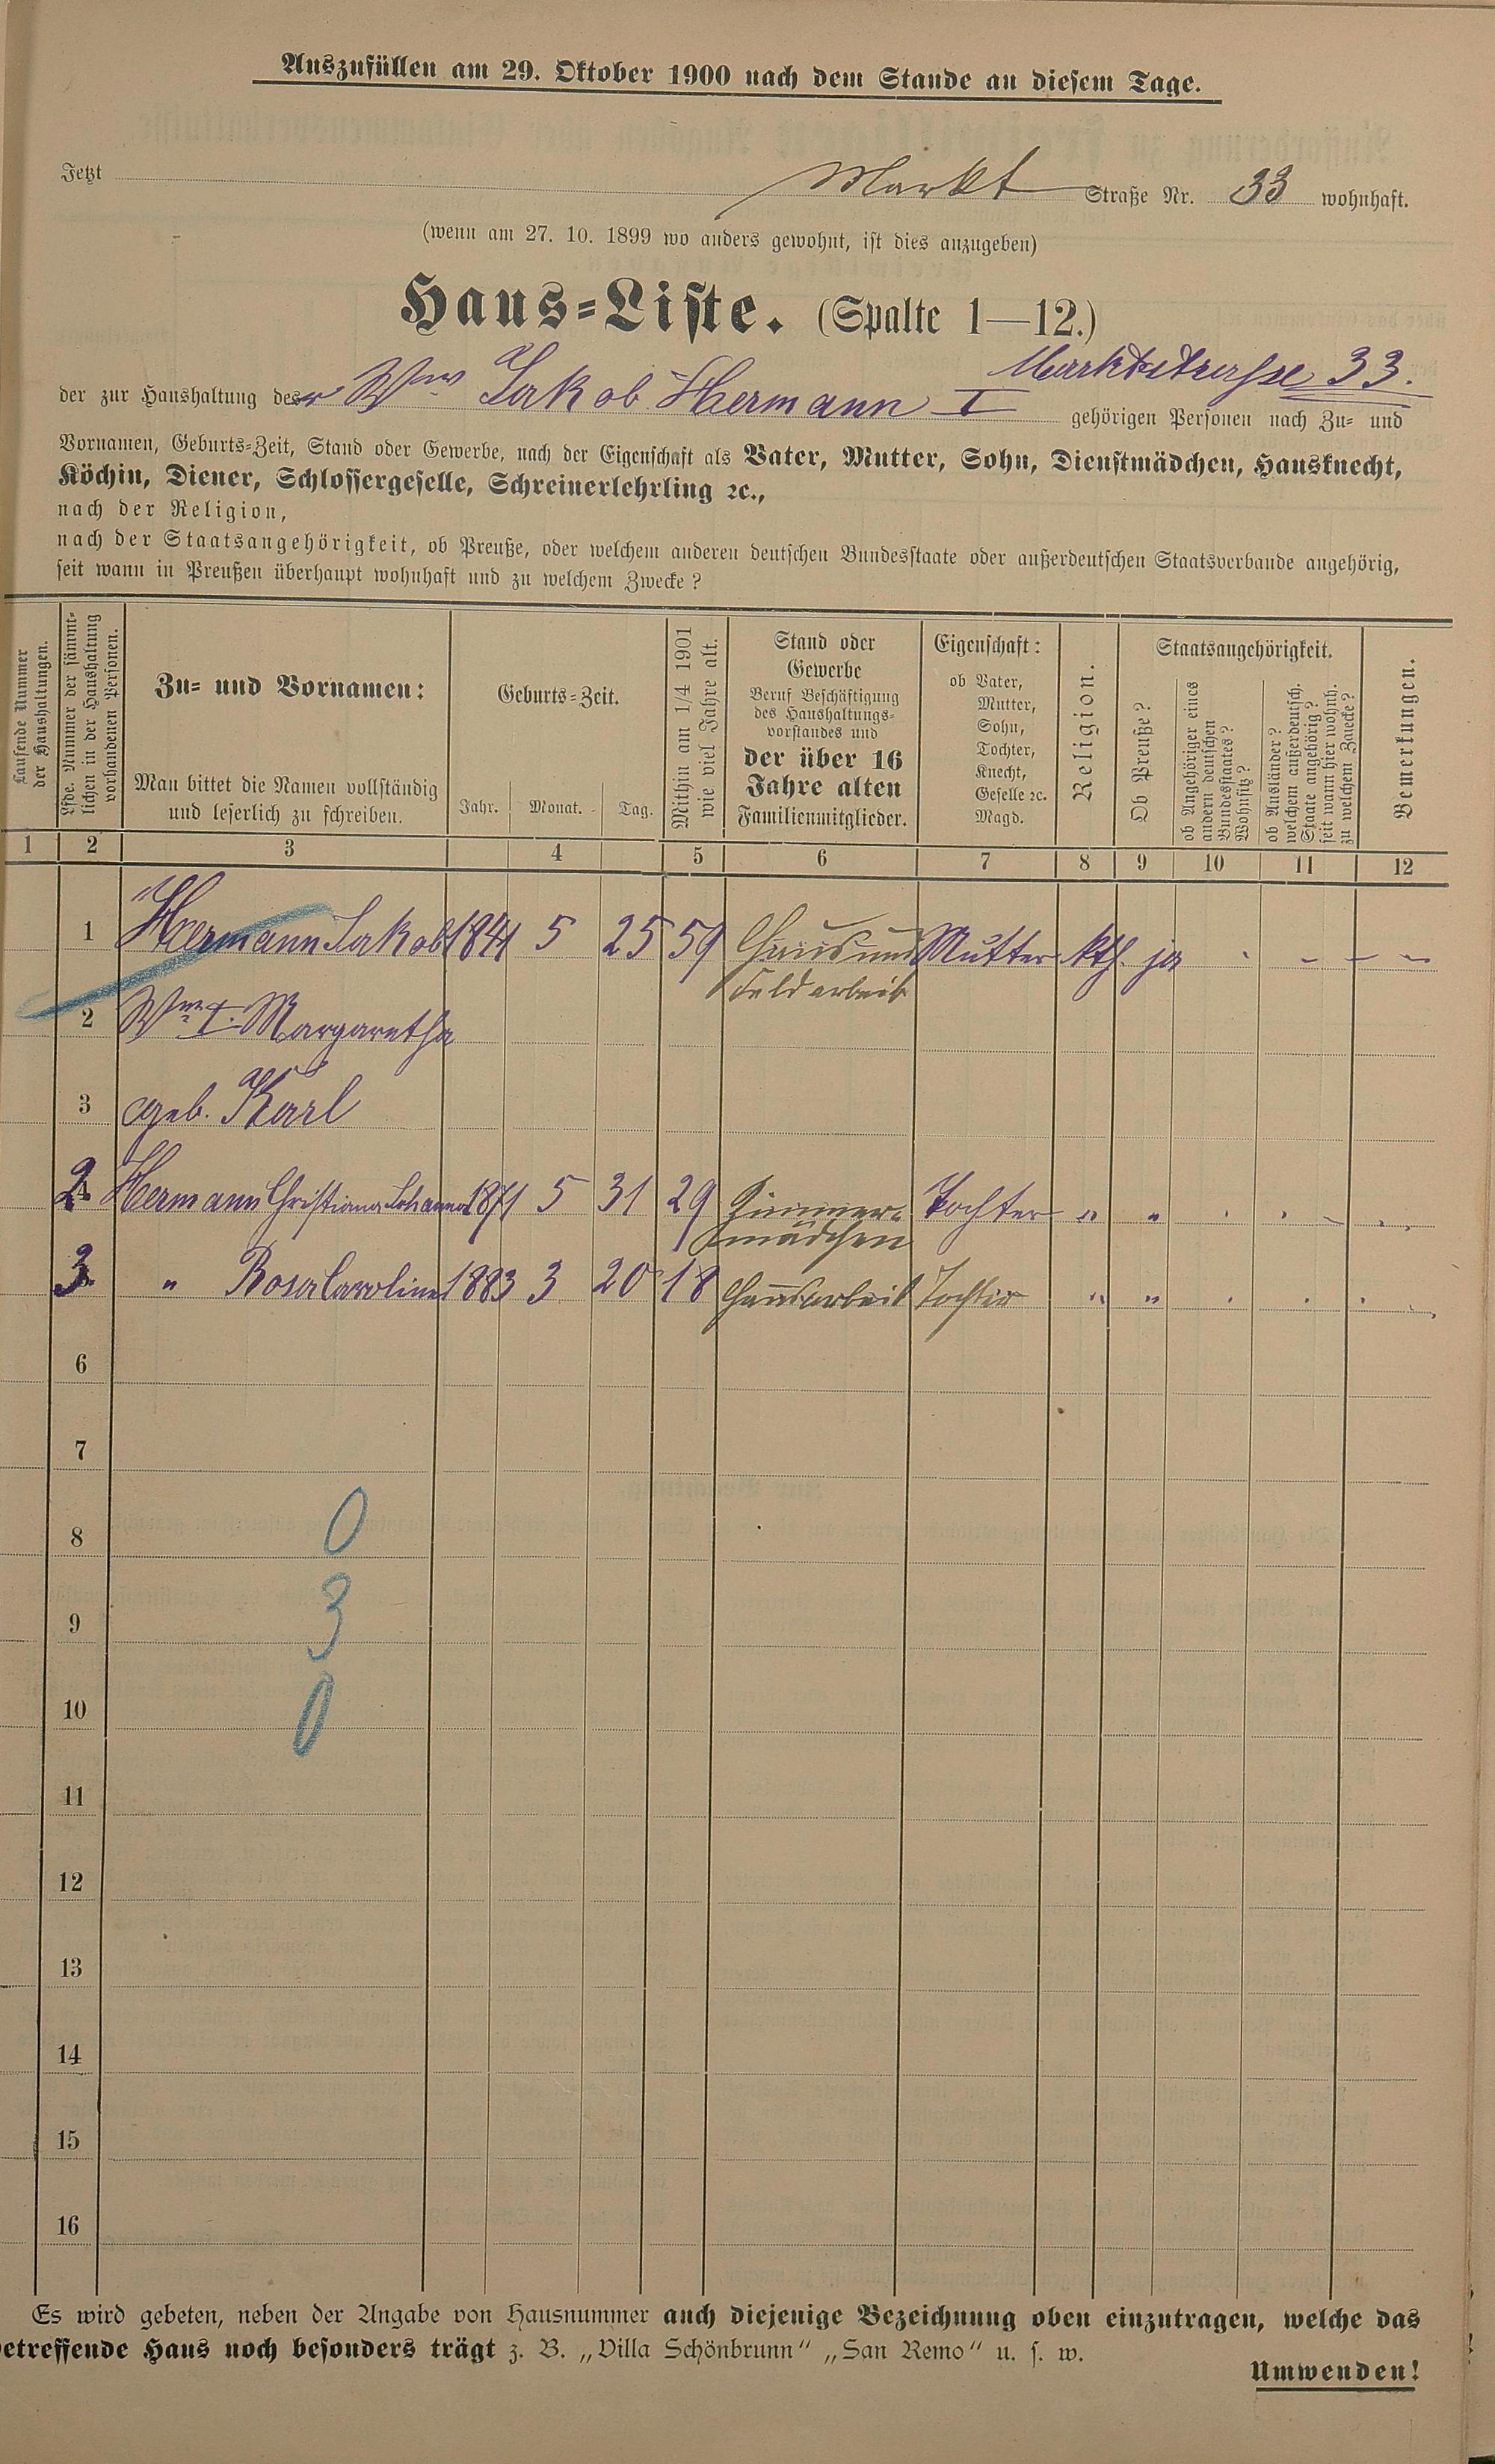 Auszufüllen am 29. Oktober 1900 nach dem Stande an diesem Tage.
Jetzt Markt Straße Nr. 33 wohnhaft.
(wenn am 27. 10. 1899 wo anders gewohnt, ist dies anzugeben)
Haus=Liste. (Spalte 1—12.)
Marktstrasse 33.
der zur Haushaltung der Wwe Jakob Hermann I gehörigen Personen nach Zu= und
Vornamen, Geburts=Zeit, Stand oder Gewerbe, nach der Eigenschaft als Vater, Mutter, Sohn, Dienstmädchen, Hausknecht,
Köchin, Diener, Schlossergeselle, Schreinerlehrling ꝛc.,
nach der Religion,
nach der Staatsangehörigkeit, ob Preuße, oder welchem anderen deutschen Bundesstaate oder außerdeutschen Staatsverbande angehörig,
seit wann in Preußen überhaupt wohnhaft und zu welchem Zwecke?
Laufende Nummer
der Haushaltungen.
Lfde. Nummer der sämmt=
lichen in der Haushaltung
vorhandenen Personen.
Zu= und Vornamen:
Man bittet die Namen vollständig
und leserlich zu schreiben.
Geburts=Zeit.
Jahr. Monat. Tag.
Mithin am 1/4 1901
wie viel Jahre alt.
Stand oder
Gewerbe
Beruf Beschäftigung
des Haushaltungs=
vorstandes und
der über 16
Jahre alten
Familienmitglieder.
Eigenschaft:
ob Vater,
Mutter,
Sohn,
Tochter,
Knecht,
Geselle ꝛc.
Magd.
Religion.
Staatsangehörigkeit.
Ob Preuße?
ob Angehöriger eines
andern deutschen
Bundesstaates?
Wohnsitz?
ob Ausländer?
welchem außerdeutsch.
Staate angehörig?
seit wann hier wohnh.
zu welchem Zwecke?
Bemerkungen.
1 2 3 4 5 6 7 8 9 10 11 12
1 Hermann Jakob 1841 5 25 59 Haus und Mutter kth. ja - - - -
Feldarbeit
2 Wwe I. Margaretha
3 geb. Karl
2 Hermann Christiana Johanna 1871 5 31 29 Zimmer= Tochter " "
mädchen
3. " Rosa Caroline 1883 3 20 18 Hausarbeit Tochter " "
6
7
8 0
9 3
10 0
11
12
13
14
15
16
Es wird gebeten, neben der Angabe von Hausnummer auch diejenige Bezeichnung oben einzutragen, welche das
etreffende Haus noch besonders trägt z. B. „Villa Schönbrunn“ „San Remo“ u. s. w.
Umwenden!